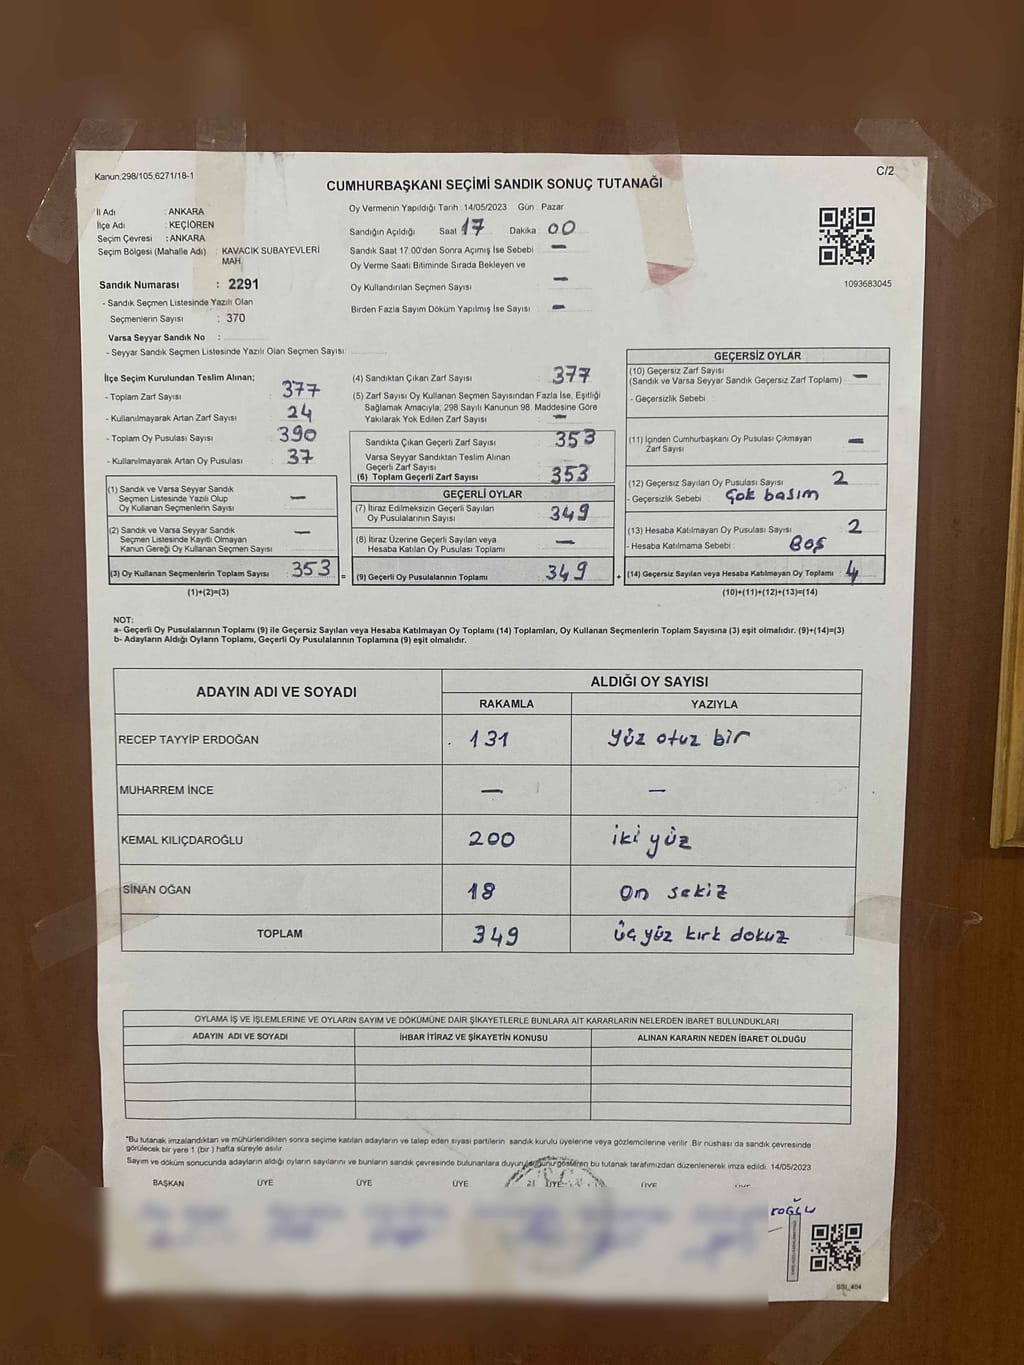 Kanun;298/105,6271/18-1
C/2
CUMHURBAŞKANI SEÇİMİ SANDIK SONUÇ TUTANAĞI
İl Adı : ANKARA
İlçe Adı : KEÇİÖREN
Seçim Çevresi : ANKARA
Seçim Bölgesi (Mahalle Adı) : KAVACIK SUBAYEVLERİ
MAH.
Sandık Numarası : 2291
- Sandık Seçmen Listesinde Yazılı Olan
Seçmenlerin Sayısı : 370
Varsa Seyyar Sandık No :
- Seyyar Sandık Seçmen Listesinde Yazılı Olan Seçmen Sayısı:
Oy Vermenin Yapıldığı Tarih :14/05/2023 Gün Pazar
Sandığın Açıldığı Saat 17 Dakika 00
Sandık Saat 17:00'den Sonra Açımış İse Sebebi : —
Oy Verme Saati Bitiminde Sırada Bekleyen ve
Oy Kullandırılan Seçmen Sayısı : —
Birden Fazla Sayım Döküm Yapılmış İse Sayısı : —
1093683045
İlçe Seçim Kurulundan Teslim Alınan;
- Toplam Zarf Sayısı : 377
- Kullanılmayarak Artan Zarf Sayısı : 24
- Toplam Oy Pusulası Sayısı : 390
- Kullanılmayarak Artan Oy Pusulası : 37
(1) Sandık ve Varsa Seyyar Sandık
Seçmen Listesinde Yazılı Olup
Oy Kullanan Seçmenlerin Sayısı : —
(2) Sandık ve Varsa Seyyar Sandık
Seçmen Listesinde Kayıtlı Olmayan
Kanun Gereği Oy Kullanan Seçmen Sayısı : —
(3) Oy Kullanan Seçmenlerin Toplam Sayısı : 353
(1)+(2)=(3)
(4) Sandıktan Çıkan Zarf Sayısı : 377
(5) Zarf Sayısı Oy Kullanan Seçmen Sayısından Fazla İse, Eşitliği
Sağlamak Amacıyla, 298 Sayılı Kanunun 98. Maddesine Göre
Yakılarak Yok Edilen Zarf Sayısı : —
Sandıkta Çıkan Geçerli Zarf Sayısı : 353
Varsa Seyyar Sandıktan Teslim Alınan
Geçerli Zarf Sayısı :
(6) Toplam Geçerli Zarf Sayısı : 353
GEÇERLİ OYLAR
(7) İtiraz Edilmeksizin Geçerli Sayılan
Oy Pusulalarının Sayısı : 349
(8) İtiraz Üzerine Geçerli Sayılan veya
Hesaba Katılan Oy Pusulası Toplamı : —
= (9) Geçerli Oy Pusulalarının Toplamı : 349
GEÇERSİZ OYLAR
(10) Geçersiz Zarf Sayısı
(Sandık ve Varsa Seyyar Sandık Geçersiz Zarf Toplamı) : —
- Geçersizlik Sebebi :
(11) İçinden Cumhurbaşkanı Oy Pusulası Çıkmayan
Zarf Sayısı : —
(12) Geçersiz Sayılan Oy Pusulası Sayısı : 2
- Geçersizlik Sebebi : Çok basım
(13) Hesaba Katılmayan Oy Pusulası Sayısı : 2
- Hesaba Katılmama Sebebi : BOŞ
+ (14) Geçersiz Sayılan veya Hesaba Katılmayan Oy Toplamı : 4
(10)+(11)+(12)+(13)=(14)
NOT:
a- Geçerli Oy Pusulalarının Toplamı (9) ile Geçersiz Sayılan veya Hesaba Katılmayan Oy Toplamı (14) Toplamları, Oy Kullanan Seçmenlerin Toplam Sayısına (3) eşit olmalıdır. (9)+(14)=(3)
b- Adayların Aldığı Oyların Toplamı, Geçerli Oy Pusulalarının Toplamına (9) eşit olmalıdır.
ADAYIN ADI VE SOYADI
ALDIĞI OY SAYISI
RAKAMLA YAZIYLA
RECEP TAYYİP ERDOĞAN 131 yüz otuz bir
MUHARREM İNCE — —
KEMAL KILIÇDAROĞLU 200 iki yüz
SİNAN OĞAN 18 on sekiz
TOPLAM 349 üç yüz kırk dokuz
OYLAMA İŞ VE İŞLEMLERİNE VE OYLARIN SAYIM VE DÖKÜMÜNE DAİR ŞİKAYETLERLE BUNLARA AİT KARARLARIN NELERDEN İBARET BULUNDUKLARI
ADAYIN ADI VE SOYADI İHBAR İTİRAZ VE ŞİKAYETİN KONUSU ALINAN KARARIN NEDEN İBARET OLDUĞU
*Bu tutanak imzalandıktan ve mühürlendikten sonra seçime katılan adayların ve talep eden siyasi partilerin sandık kurulu üyelerine veya gözlemcilerine verilir. Bir nüshası da sandık çevresinde
görülecek bir yere 1 (bir) hafta süreyle asılır.
Sayım ve döküm sonucunda adayların aldığı oyların sayılarını ve bunların sandık çevresinde bulunanlara duyurulduğunu gösteren bu tutanak tarafımızdan düzenlenerek imza edildi. 14/05/2023
BAŞKAN ÜYE ÜYE ÜYE ÜYE ÜYE